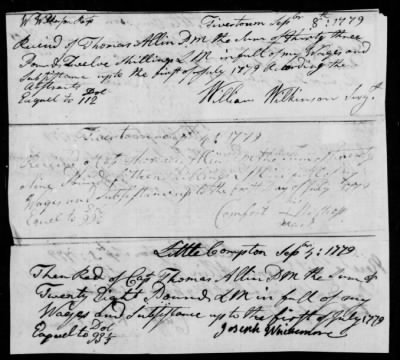 W Wilkinson Rect
Tivertown Sepbr 8th 1779
Receved of Thomas Allin D.M the Sum of thirty three
Poun d & Twelve Shillings L M in full of my Wages and
Subsistance up to the first of July 1779 According the
Abstracts
Equel to 112 Dol
William Wilkinson Surgt
Tivertown Sepr 4: 1779
Receved of Capt Thomas Allin D M the Sum of
Nine Pound & fifteen Shillings L M in full of my
Wages and Subsistance up to the first Day of July 1779
Equel to
Comfort Bishop
Little Compton Sepr 4: 1779
Then Recd of Cap Thomas Allin D.M the Sum of
Twenty Eight Pounds L M in full of my
Wages and Subsistance up to the first of July 1779
Equel to 93⅓ Dol
Joseph Whitemore